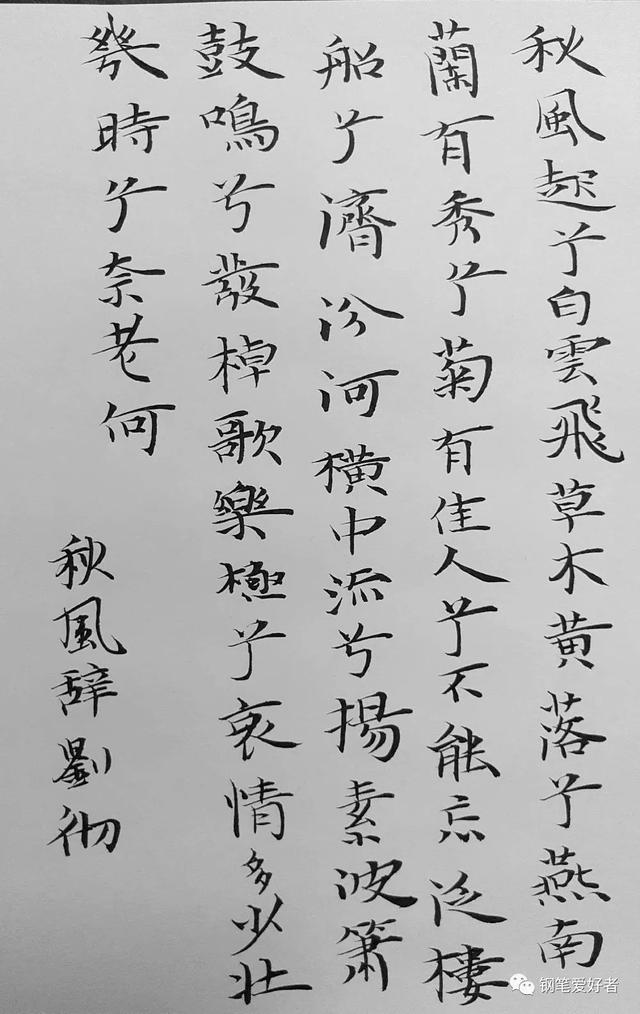 秋風起兮白雲飛草木黄落兮燕南
蘭有秀兮菊有佳人兮不能忘泛樓
船兮濟汾河横中流兮揚素波簫
鼓鳴兮發棹歌樂極兮哀情多少壯
幾時兮奈老何
秋風辭劉彻
钢笔爱好者